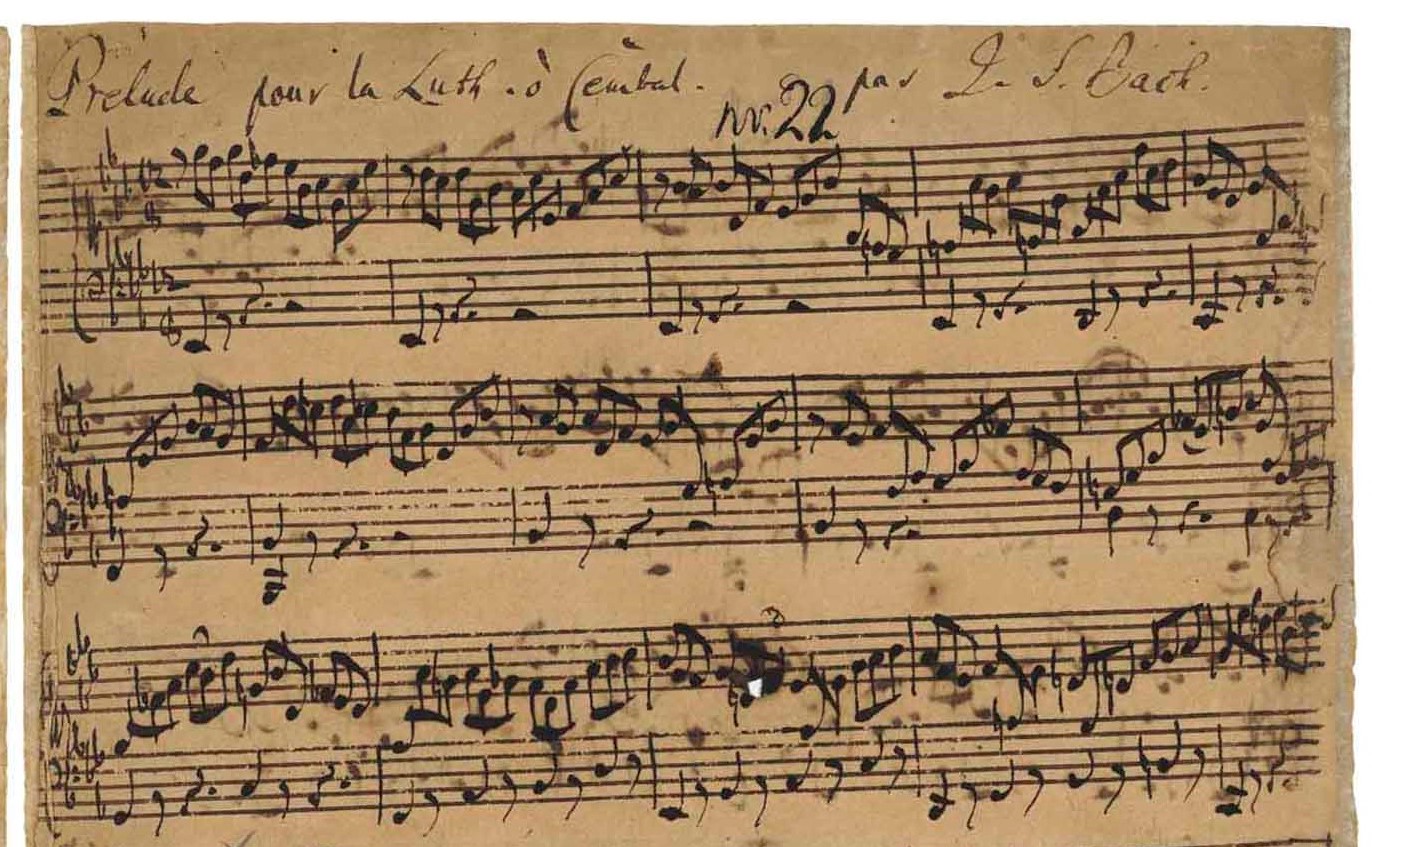 Prelude pour la Luth. ò Cembal. par J. S. Bach.
nr. 22